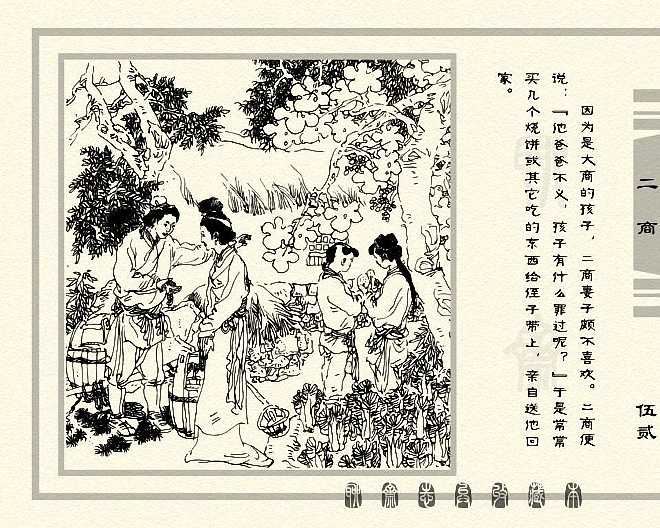 因为是大商的孩子，二商妻子颇不喜欢。二商便
说：『他爸爸不义，孩子有什么罪过呢？』于是常常
买几个烧饼或其它吃的东西给侄子带上，亲自送他回
家。
二商
伍贰
聊斋志异收藏本